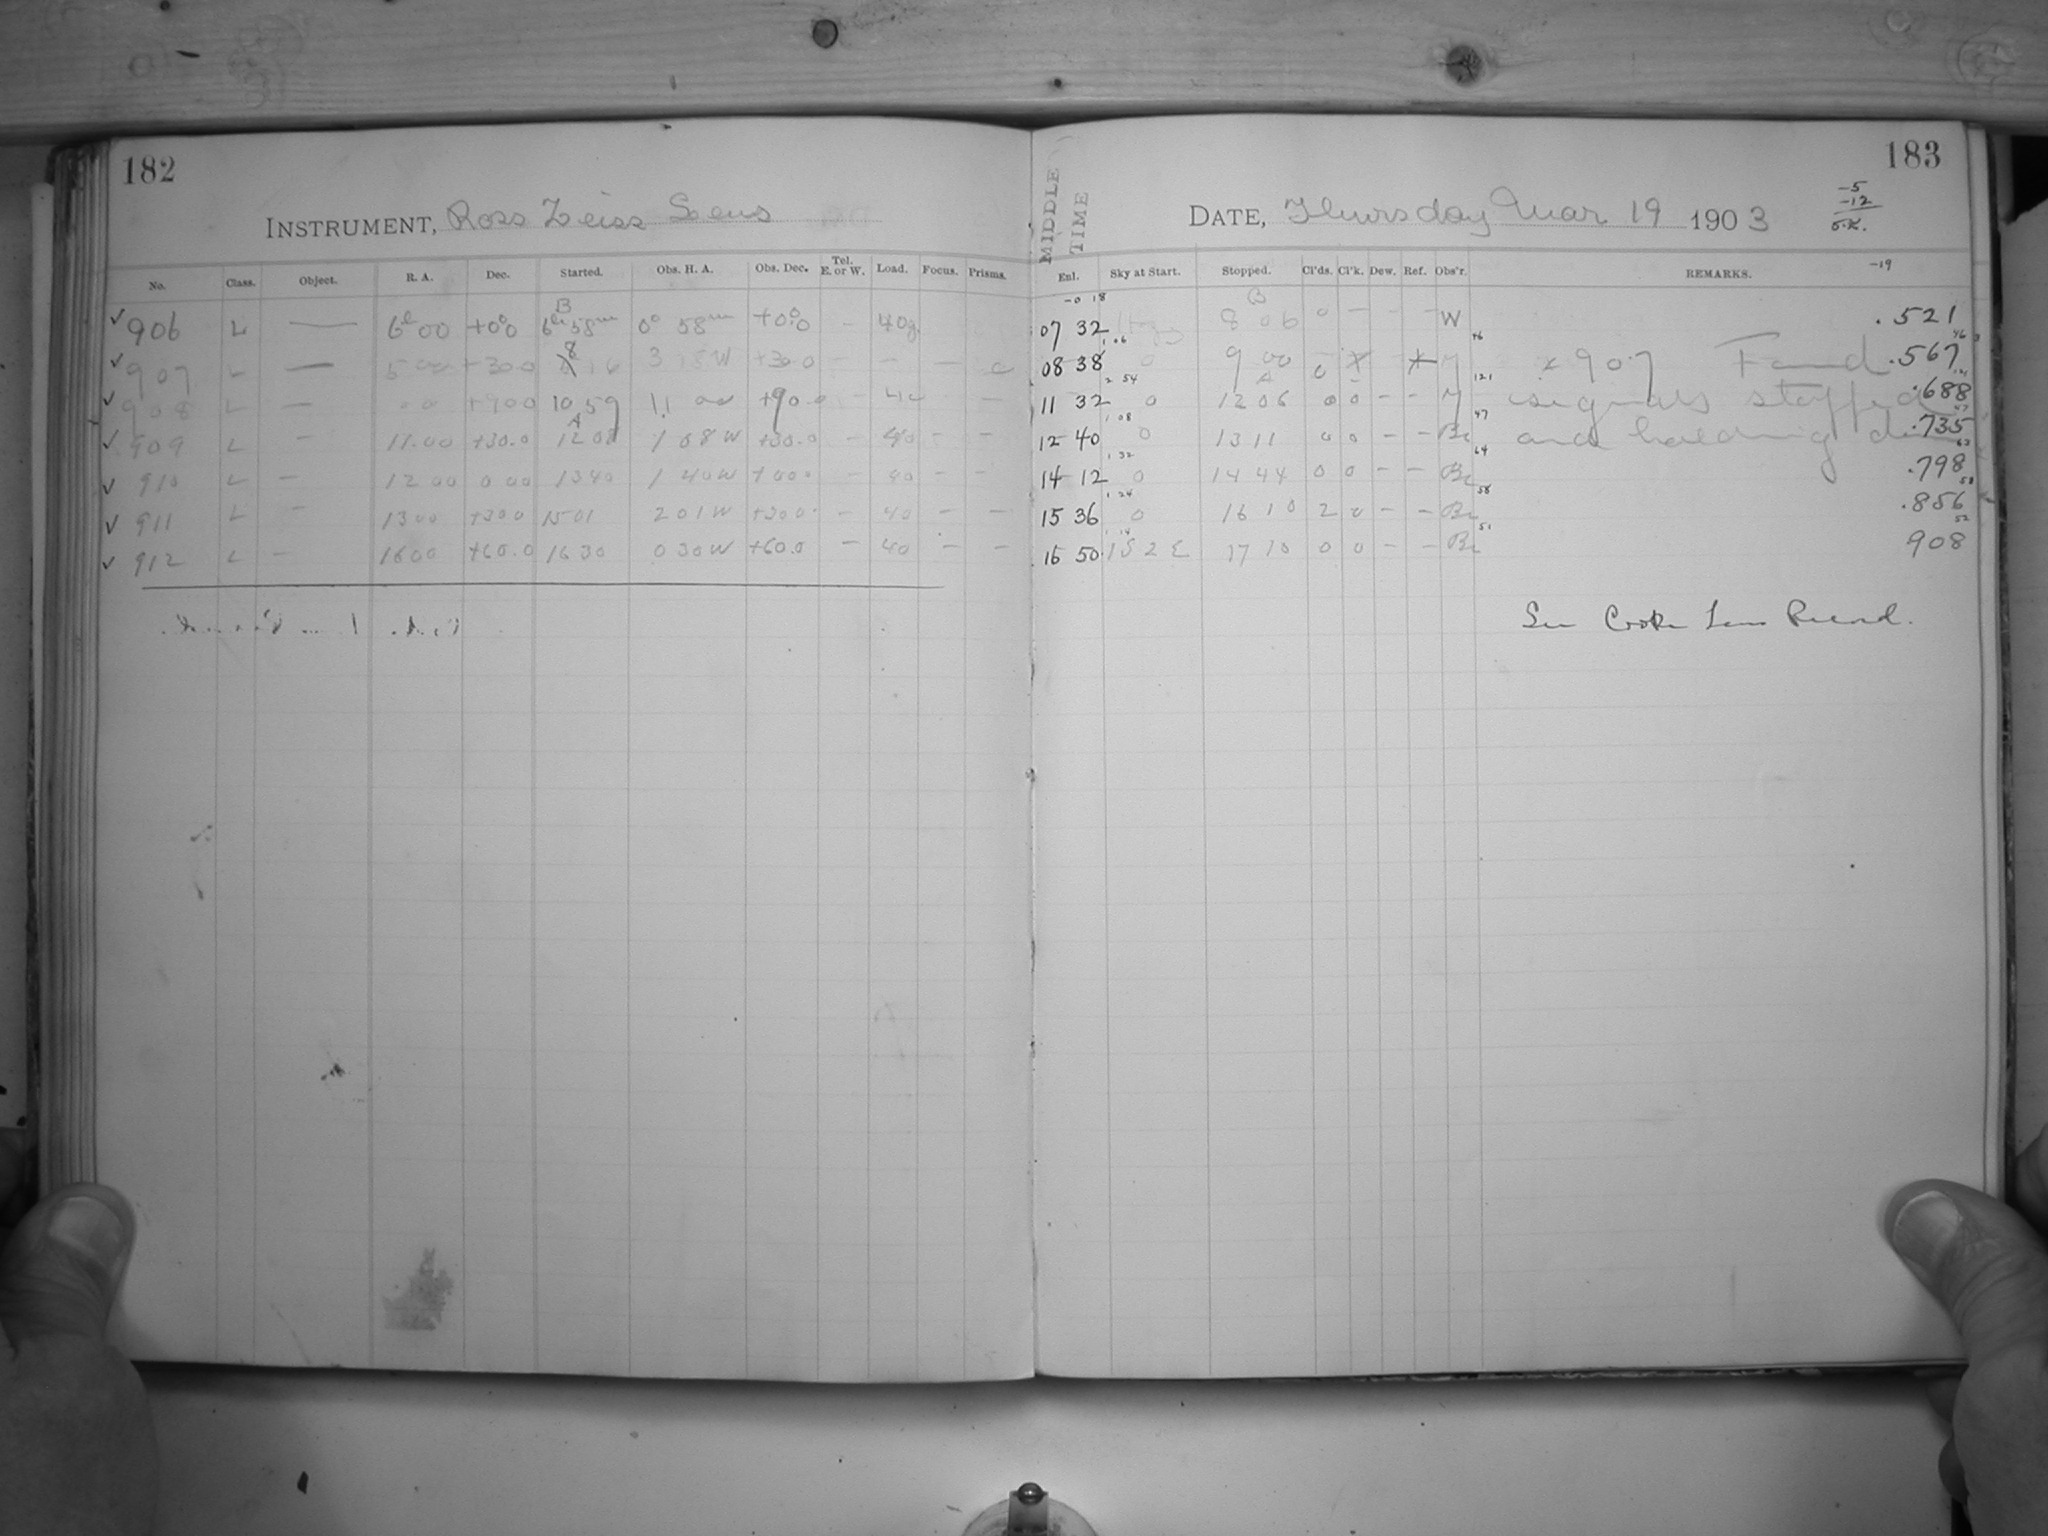 182
183
INSTRUMENT, Ross Zeiss Lens
MIDDLE TIME
DATE, Thursday Mar 19 1903
-5
-12
O.K.
No. Class. Object. R. A. Dec. Started. Obs. H. A. Obs. Dec. Tel. E. or W. Load. Focus. Prisms. Enl. Sky at Start. Stopped. Cl'ds. Cl'k. Dew. Ref. Obs'r. REMARKS. -19
-0 18
✓ 906 L — 6h 00 +0°0 B 6h 58m 0° 58m +0°0 – 40g 07 32 B 8 06 0 – – – W .521
1 06 46 46
✓ 907 L — 5 00 +30.0 8 16 3 15 W +30.0 – – – 08 38 0 9 00 0 * * M x 907 Found .567
2 54 121 121
✓ 908 L — 0 0 +90.0 10 59 11 00 +90.0 – 40 – 11 32 0 A 12 06 0 0 – – M signals stopped .688
1 08 47 47
✓ 909 L – 11.00 +30.0 A 12 08 1 08 W +30.0 – 40 – – 12 40 0 13 11 0 0 – – Bc and holding down .735
1 32 64 63
✓ 910 L – 12 00 0 00 13 40 1 40 W +00.0 – 40 – – 14 12 0 14 44 0 0 – – Bc .798
1 24 58 58
✓ 911 L – 13 00 +30.0 15 01 2 01 W +30.0 – 40 – – 15 36 0 16 10 2 0 – – Bc .856
1 14 51 52
✓ 912 L – 16 00 +60.0 16 30 0 30 W +60.0 – 40 – – 16 50 1 52 E 17 10 0 0 – – Bc 908
See Cooke Lens Record.